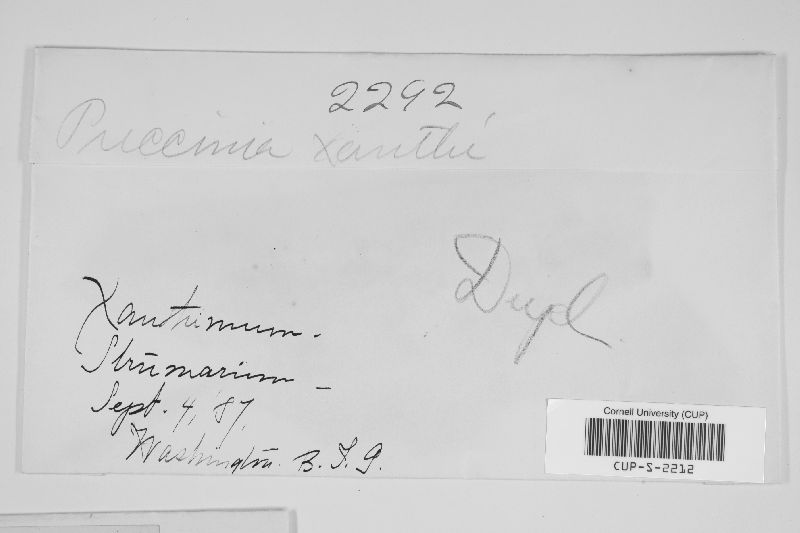 2292
Puccinia Xanthii
Dupl.
Xantrimum.
Strumarium –
Sept. 4, '87,
Washington. B. T. G.
Cornell University (CUP)
CUP-S-2212